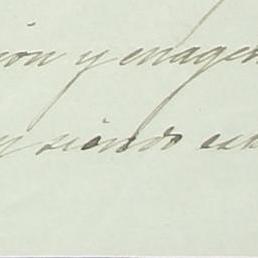 ion y enagen
y siendo est